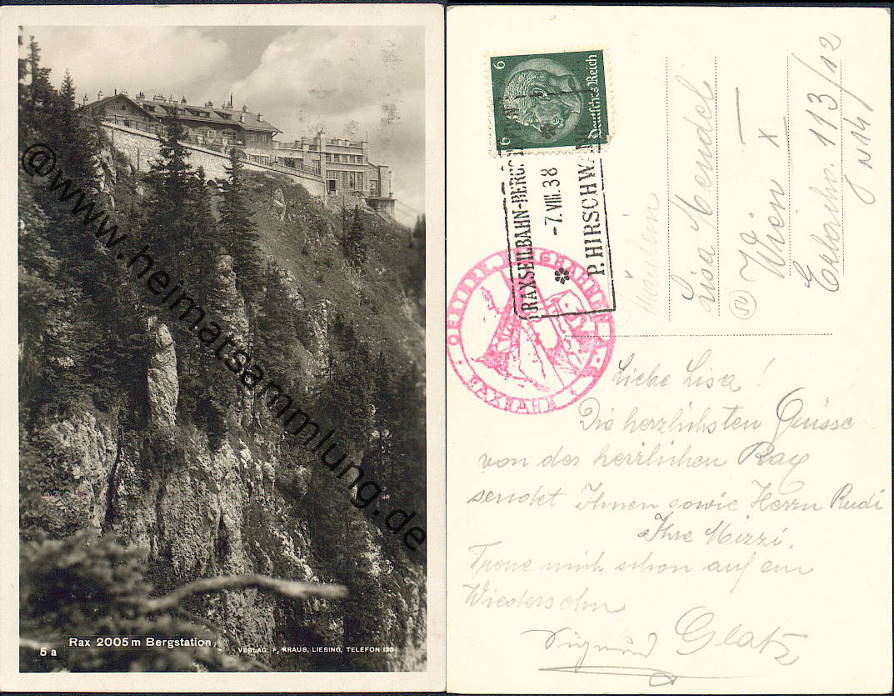 @www.heimatsammlung.de
5 a
Rax 2005 m Bergstation
VERLAG F. KRAUS, LIESING, TELEFON
6 6
Deutsches Reich
RAXSEILBAHN-BERGST
-7.VIII.38
P. HIRSCHWA
RAXBAHN
Fräulein
Lisa Mendel
Wien X
Erlachstr. 113/12
Liebe Lisa!
Die herzlichsten Grüsse
von der herrlichen Rax
sendet Ihnen sowie Herrn Rudi
Ihre Mizzi.
Freue mich schon auf ein
Wiedersehn
Sigmund Glatz